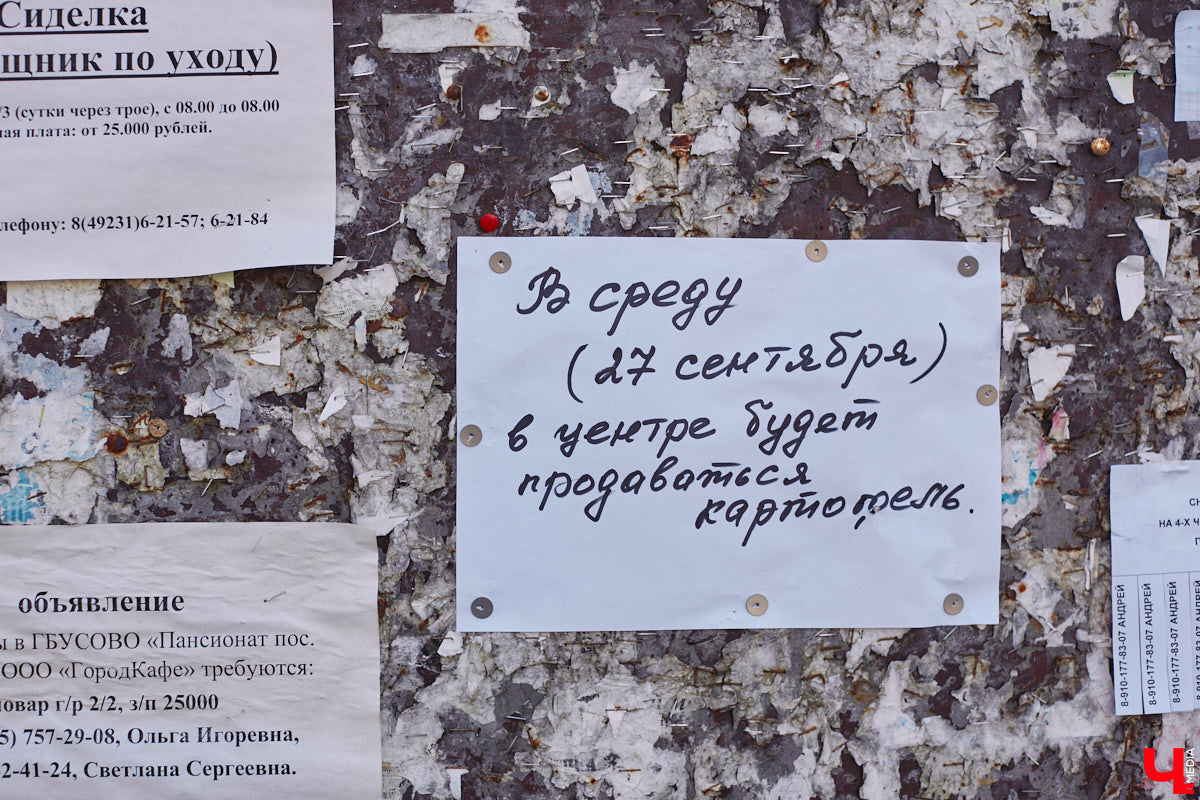 Сиделка
щник по уходу)
/3 (сутки через трое), с 08.00 до 08.00
ная плата: от 25.000 рублей.
лефону: 8(49231)6-21-57; 6-21-84
В среду
(27 сентября)
в центре будет
продаваться
картофель.
объявление
ы в ГБУСОВО «Пансионат пос.
ООО «ГородКафе» требуются:
повар г/р 2/2, з/п 25000
5) 757-29-08, Ольга Игоревна,
2-41-24, Светлана Сергеевна.
НА 4-Х Ч
8-910-177-83-07 АНДРЕЙ
8-910-177-83-07 АНДРЕЙ
8-910-177-83-07 АНДРЕЙ
Ч MEDIA